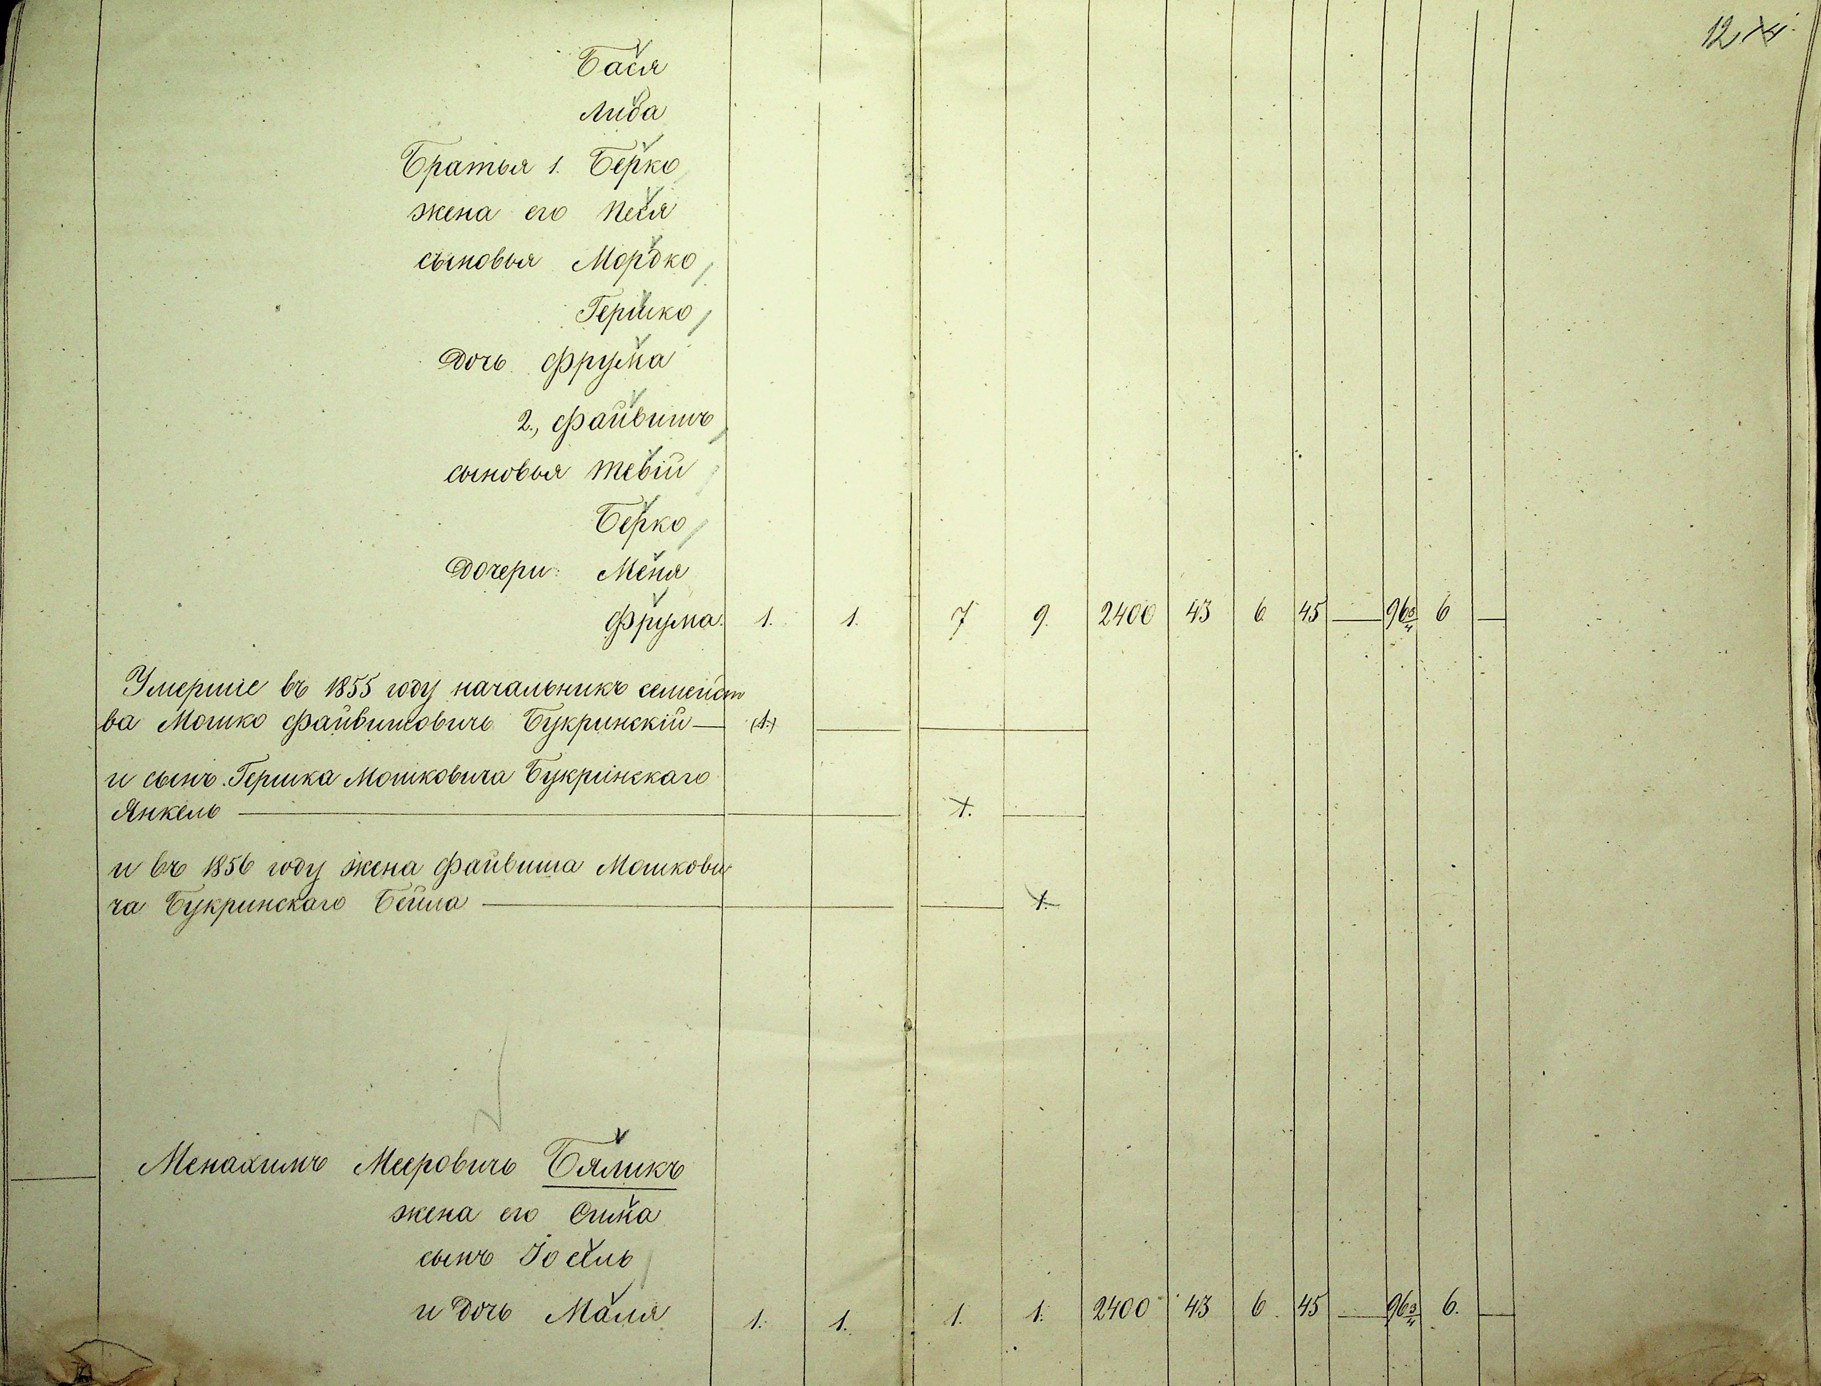 12
Бася
Либа
Братья 1. Берко
жена его Песя
сыновья Мордко
Гершко
Дочь Фрума
2., Файвишъ
сыновья Тевій
Берко
Дочери: Меня
Фрума. 1. 1. 7 9. 2400 43 6 45 — 96 3/4 6 —
Умершіе въ 1855 году начальникъ семейст
ва Мошко Файвишовичъ Букринскій — (1.)
и сынъ Гершка Мошковича Букринскаго
Янкель — 1.
и въ 1856 году жена Файвиша Мошкови
ча Букринскаго Бейла — 1.
Менахимъ Мееровичъ Бяликъ
жена его
сынъ Іосель
и Дочь Маля 1. 1. 1. 1. 2400 43 6 45 — 96 3/4 6. —